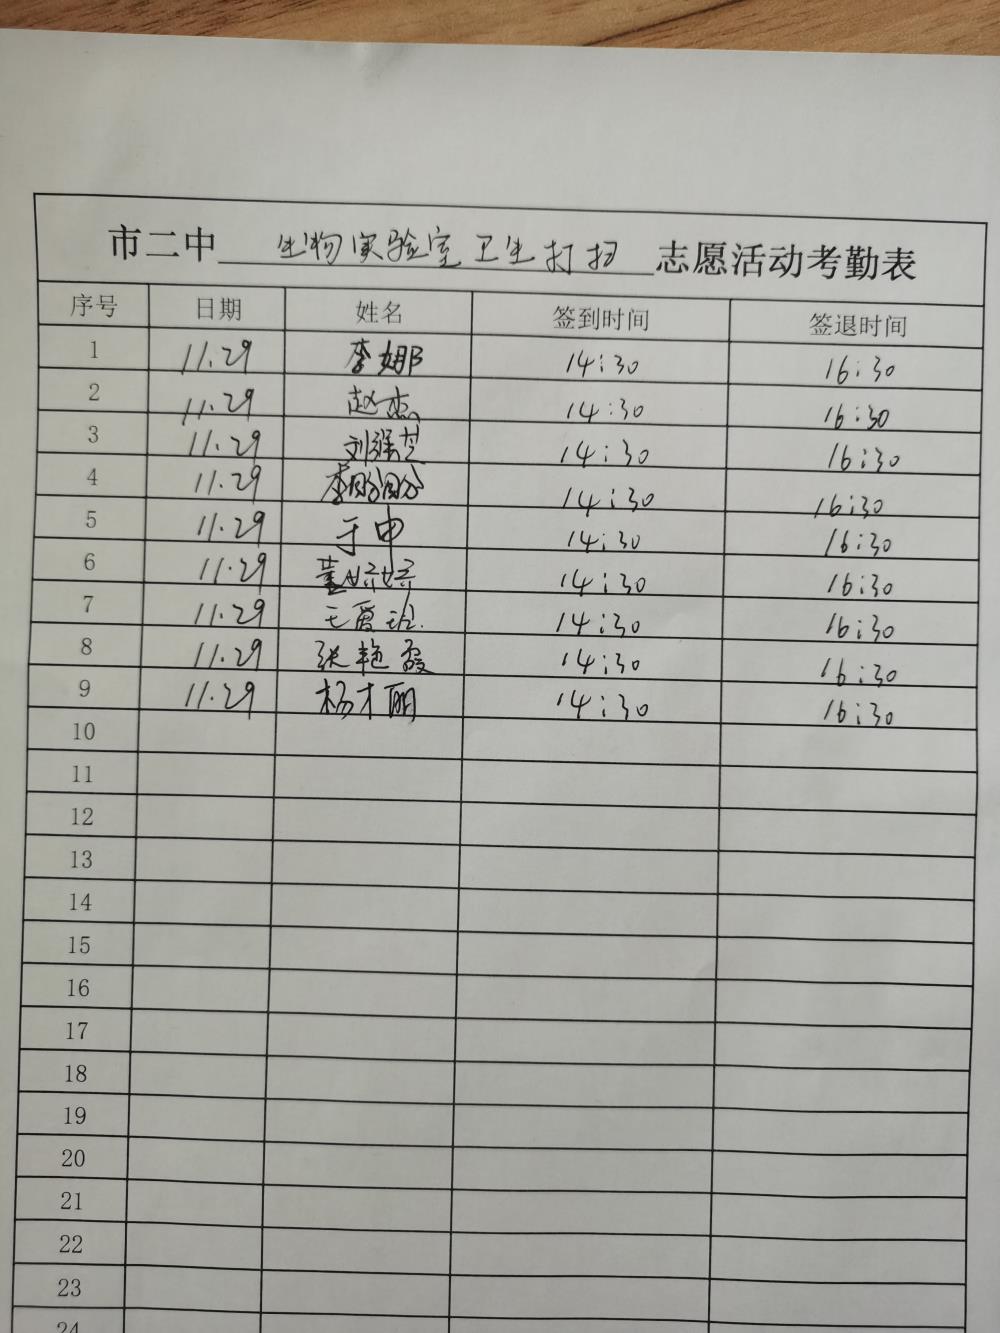 市二中 生物实验室卫生打扫 志愿活动考勤表
序号 日期 姓名 签到时间 签退时间
1 11.29 李娜 14:30 16:30
2 11.29 赵杰 14:30 16:30
3 11.29 刘瑞芝 14:30 16:30
4 11.29 李 14:30 16:30
5 11.29 于申 14:30 16:30
6 11.29 董婷婷 14:30 16:30
7 11.29 王爱班 14:30 16:30
8 11.29 张艳霞 14:30 16:30
9 11.29 杨才丽 14:30 16:30
10
11
12
13
14
15
16
17
18
19
20
21
22
23
24